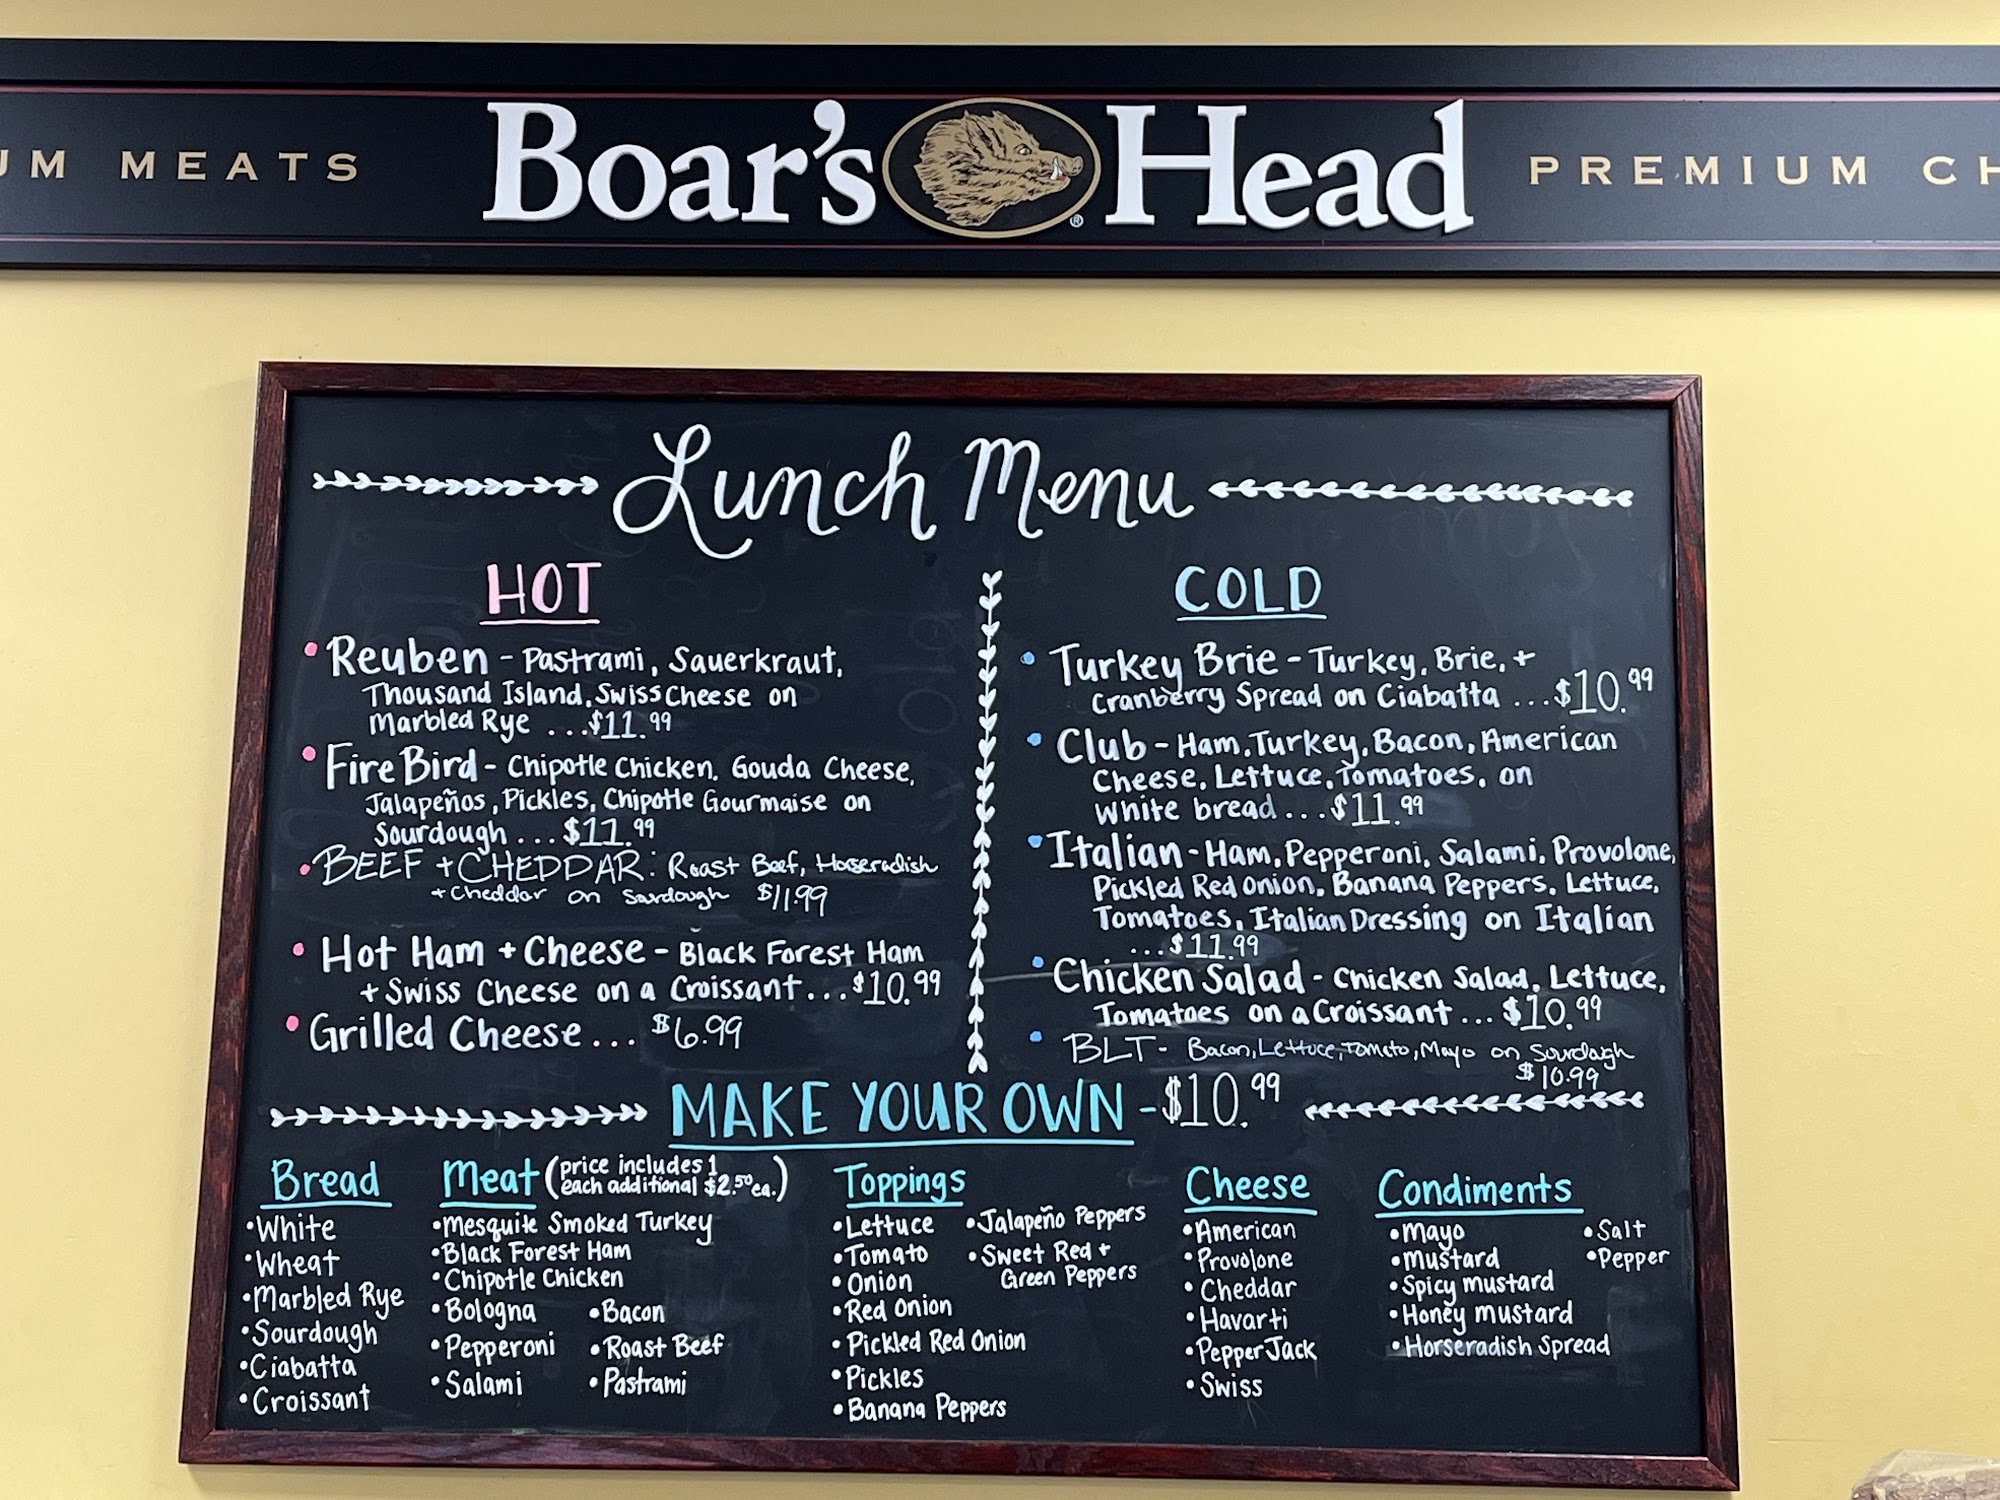 UM MEATS Boar's Head® PREMIUM CH
Lunch Menu
HOT
• Reuben - Pastrami, Sauerkraut,
Thousand Island, Swiss Cheese on
Marbled Rye ...$11.99
• Fire Bird - Chipotle Chicken, Gouda Cheese,
Jalapeños, Pickles, Chipotle Gourmaise on
Sourdough ... $11.99
• BEEF + CHEDDAR: Roast Beef, Horseradish
+ Cheddar on Sourdough $11.99
• Hot Ham + Cheese - Black Forest Ham
+ Swiss Cheese on a Croissant...$10.99
• Grilled Cheese... $6.99
COLD
• Turkey Brie - Turkey, Brie, +
Cranberry Spread on Ciabatta ...$10.99
• Club - Ham, Turkey, Bacon, American
Cheese, Lettuce, Tomatoes, on
White bread ...$11.99
• Italian - Ham, Pepperoni, Salami, Provolone,
Pickled Red Onion, Banana Peppers, Lettuce,
Tomatoes, Italian Dressing on Italian
...$11.99
• Chicken Salad - Chicken Salad, Lettuce,
Tomatoes on a Croissant ... $10.99
• BLT - Bacon, Lettuce, Tomato, Mayo on Sourdough
$10.99
MAKE YOUR OWN - $10.99
Bread
• White
• Wheat
• Marbled Rye
• Sourdough
• Ciabatta
• Croissant
Meat (price includes 1
each additional $2.50 ea.)
• Mesquite Smoked Turkey
• Black Forest Ham
• Chipotle Chicken
• Bologna
• Pepperoni
• Salami
• Bacon
• Roast Beef
• Pastrami
Toppings
• Lettuce
• Tomato
• Onion
• Red Onion
• Pickled Red Onion
• Pickles
• Banana Peppers
• Jalapeño Peppers
• Sweet Red +
Green Peppers
Cheese
• American
• Provolone
• Cheddar
• Havarti
• Pepper Jack
• Swiss
Condiments
• Mayo
• Mustard
• Spicy mustard
• Honey mustard
• Horseradish Spread
• Salt
• Pepper